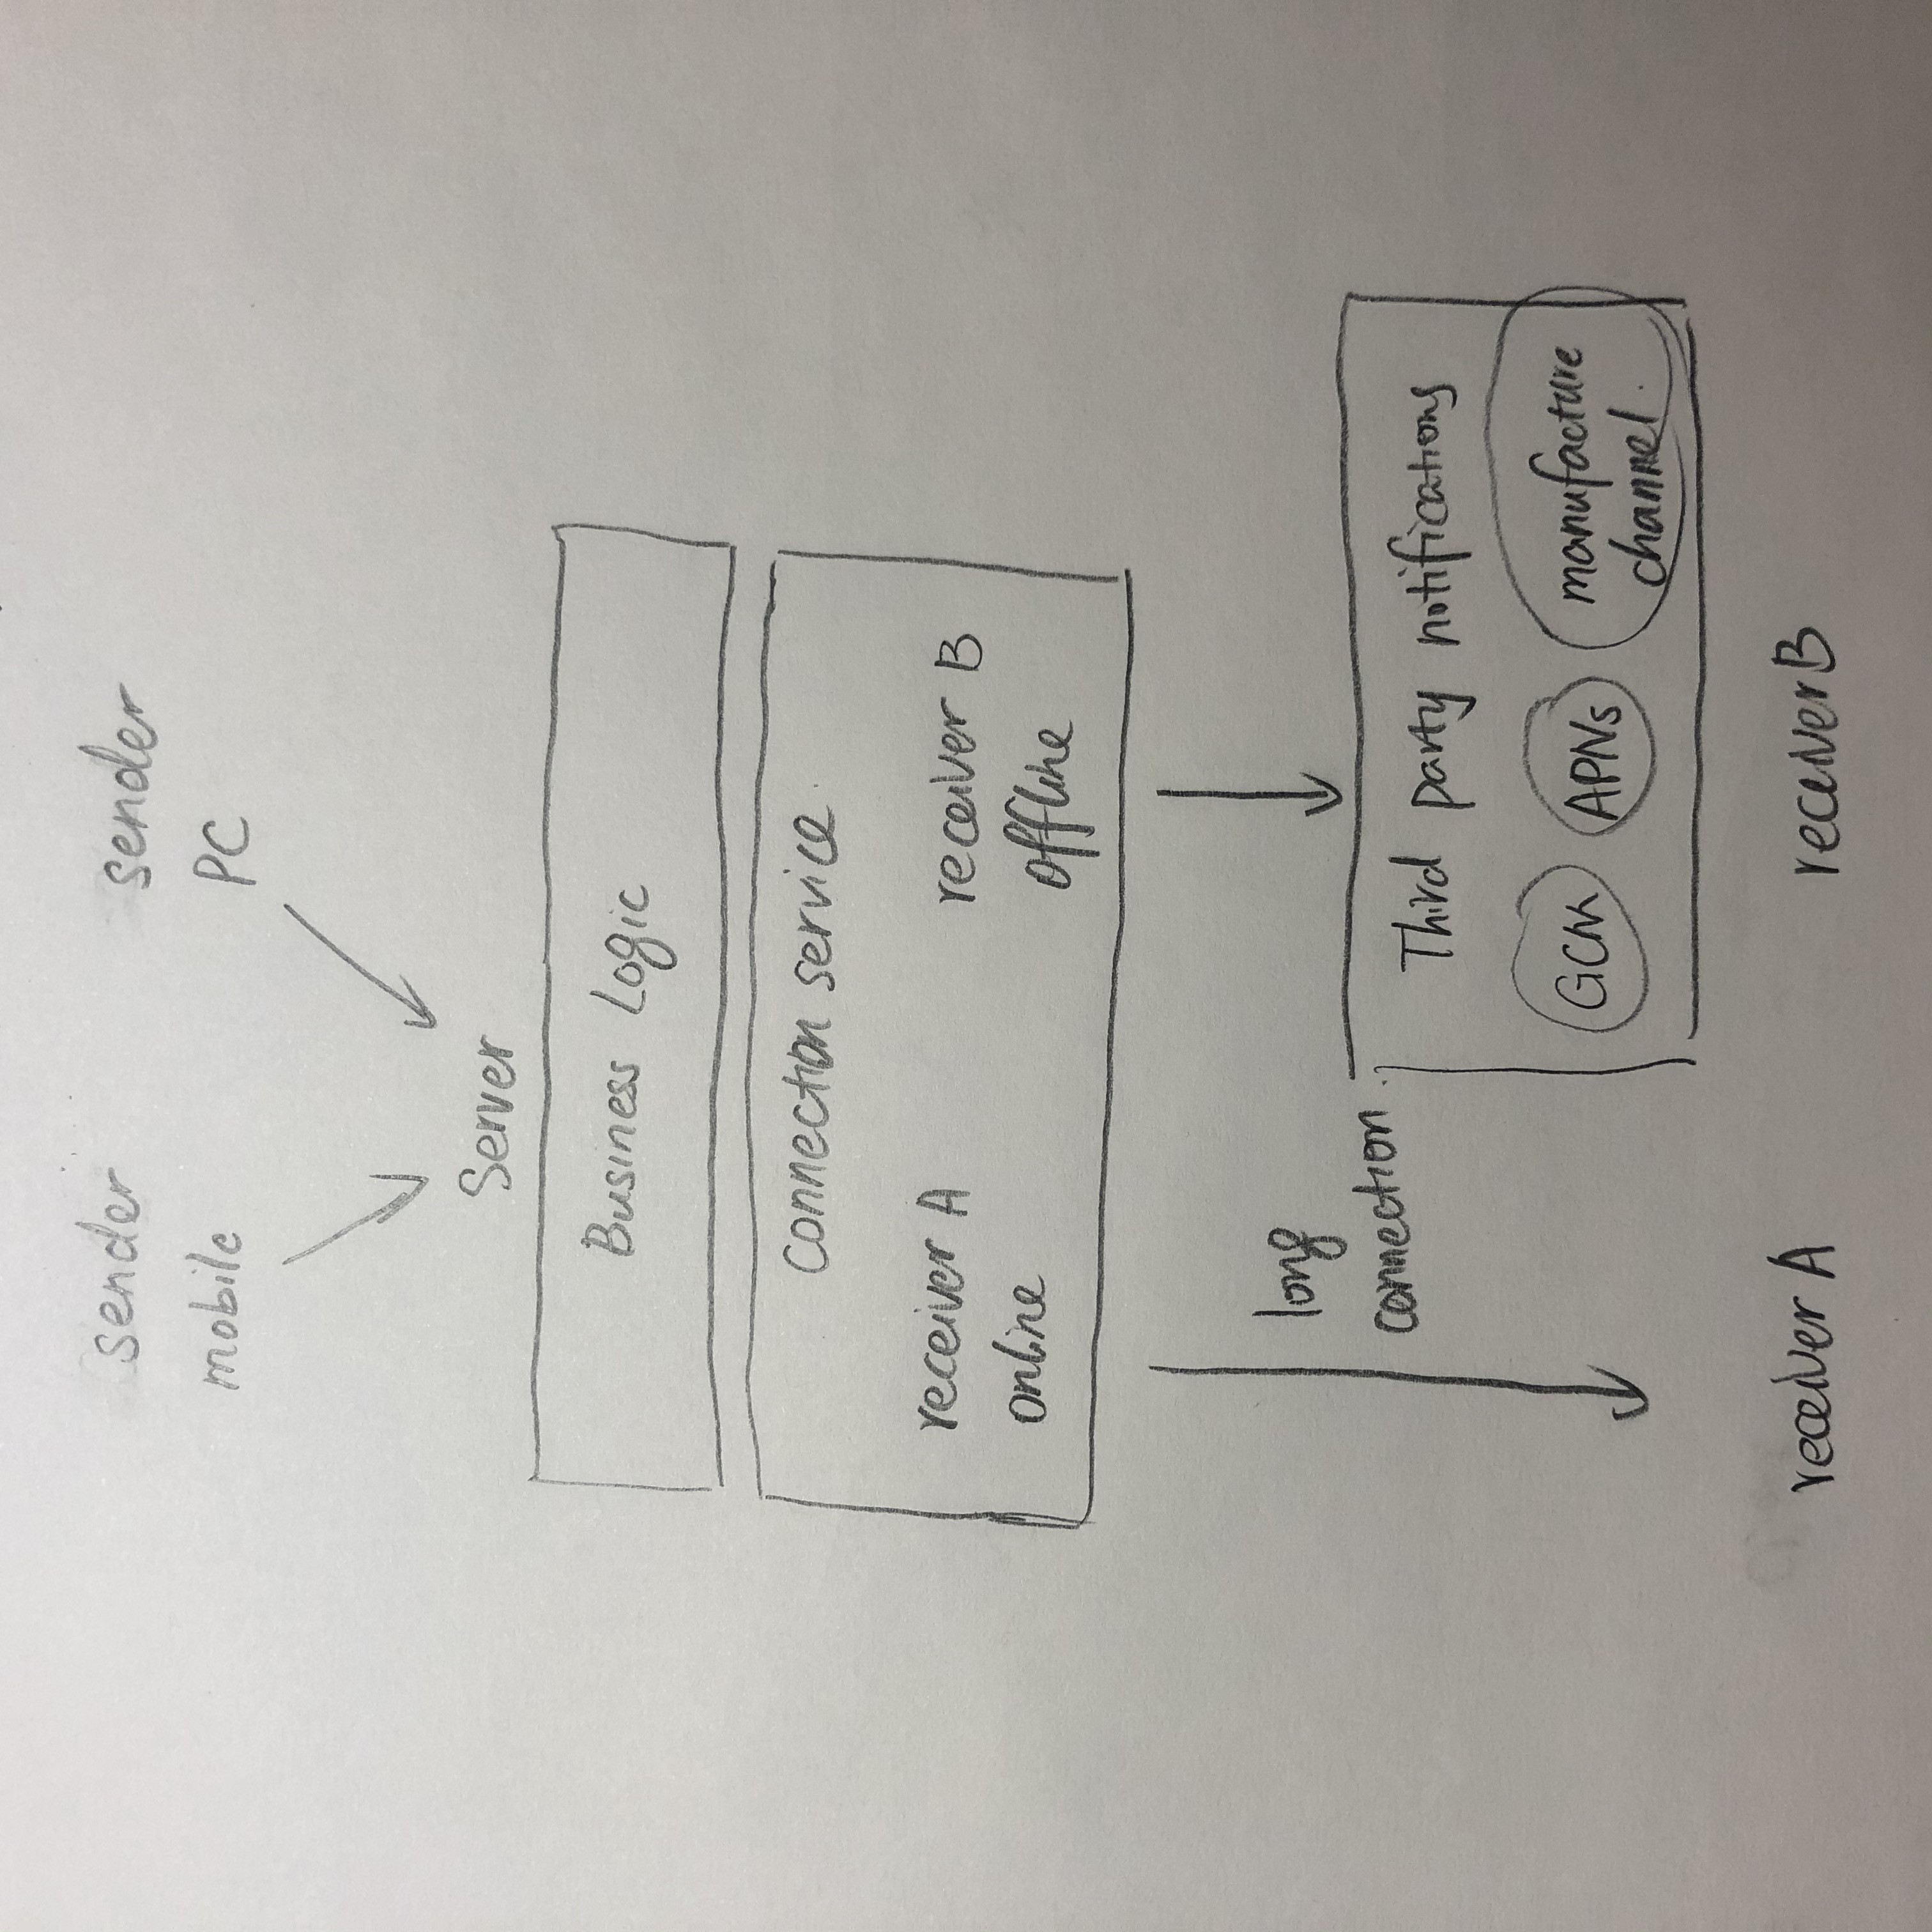 sender
sender
mobile
PC
Server
Business Logic
Connection service
receiver A
receiver B
online
offline
long
connection
Third party notifications
GCM
APNs
manufacture
channel.
receiver A
receiver B